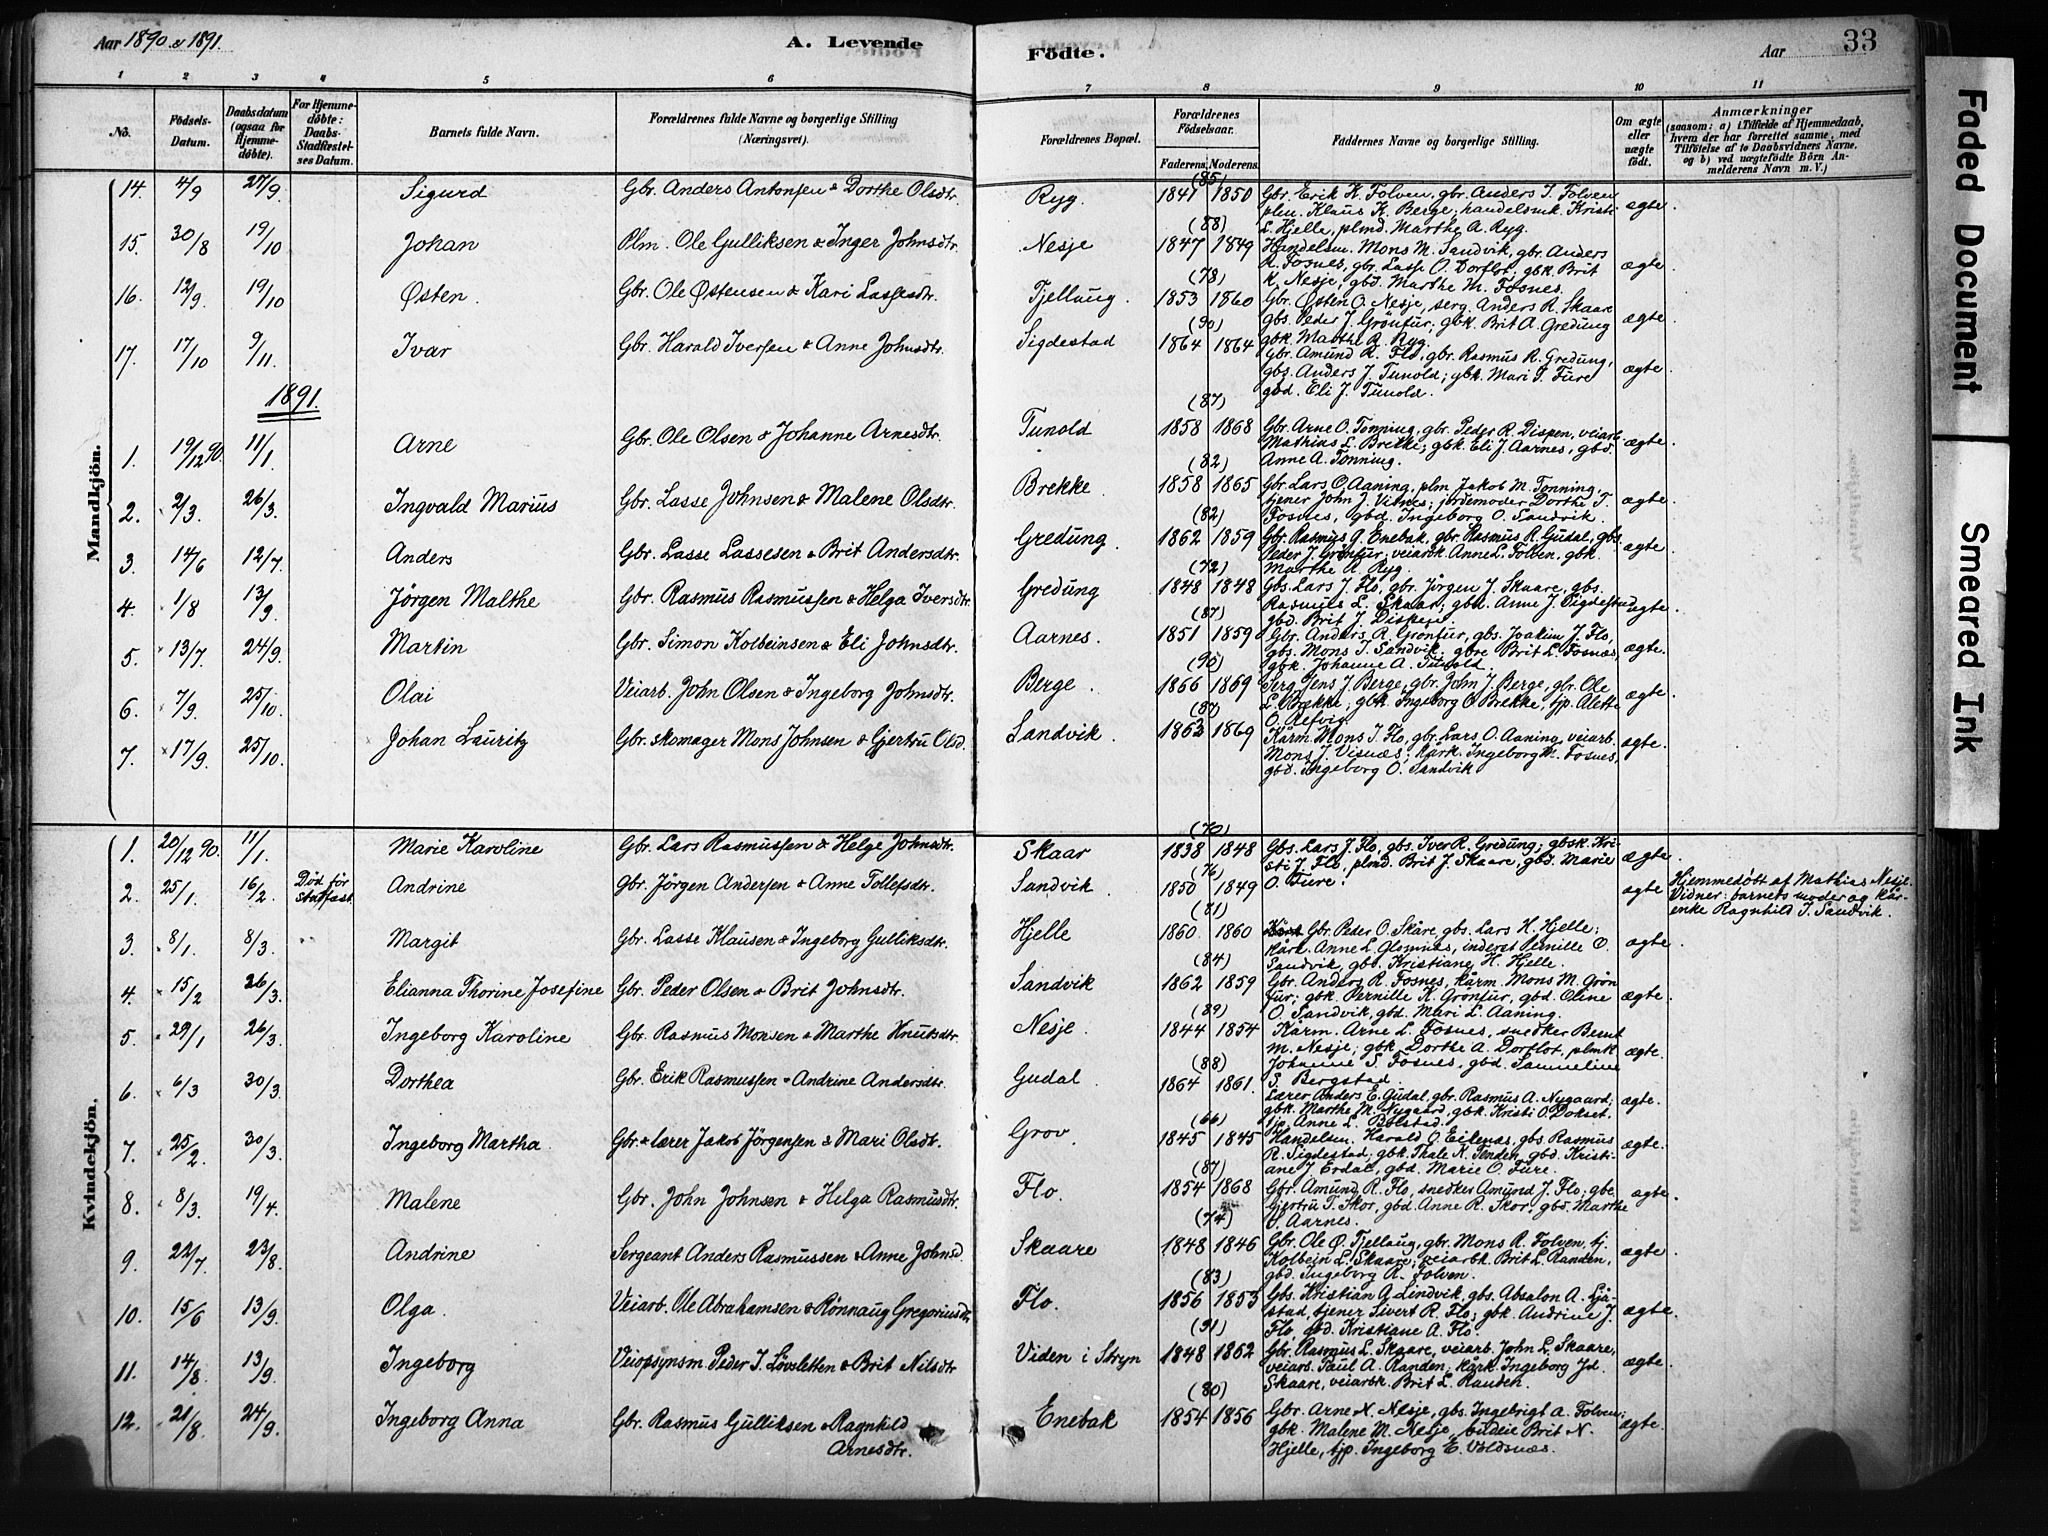 Aar 1890 & 1891.
A. Levende
Födte.
Aar
33
1 2 3 4 5 6 7 8 9 10 11
No.
Födsels-Datum.
Daabsdatum (ogsaa for Hjemme-döbte).
For Hjemme-döbte: Daabs-Stadfæstel-ses Datum.
Barnets fulde Navn.
Forældrenes fulde Navne og borgerlige Stilling (Næringsvei).
Forældrenes Bopæl.
Forældrenes Födselsaar.
Faderens. Moderens.
Faddernes Navne og borgerlige Stilling.
Om ægte eller uægte födt.
Anmærkninger
(saasom: a) i Tilfælde af Hjemmedaab, hvem der har forrettet samme, med Tilföielse af to Daabsvidners Navne, og b) ved uægtefödte Börn An-melderens Navn m. V.)
Mandkjön.
14. 4/9 27/9. Sigurd Gbr. Anders Antonsen & Dorthe Olsdtr. Ryg. (85) 1841 1850 Gbr. Erik K. Folven, gbr. Anders I. Folven
plm. Klaus K. Berge; handelsmk. Kristi
L. Hjelle, plmd. Marthe A. Ryg. ægte.
15. 30/8 19/10 Johan Plm. Ole Gulliksen & Inger Johnsdtr. Nesje (88) 1847 1849 Handelsm. Mons M. Sandvik, gbr. Anders
R. Fosnes, gbr. Lasse O. Dorflot; gbk. Brit
K. Nesje; gbd. Marthe M. Fosnes. ægte.
16. 12/9. 19/10 Østen. Gbr. Ole Østensen & Kari Lassesdtr. Tjellaug. (78) 1853 1860 Gbr. Østen O. Nesje, serg. Anders R. Skaare
gbs. Peder J. Grönfur; gbk. Brit A. Gredung
gbk. Marthe R. Ryg. ægte.
17. 17/10 9/11. Ivar Gbr. Harald Iversen & Anne Johnsdtr. Sigdestad (90) 1864 1864 Gbr. Amund R. Flo, gbr. Rasmus R. Gredung,
gbs. Anders J. Tunold; gbk. Mari T. Fure
gbd. Eli J. Tunold. ægte.
1891.
1. 19/12 90. 11/1. Arne Gbr. Ole Olsen & Johanne Arnesdtr. Tunold (87) 1858 1868 Gbr. Arne O. Tonning, gbr. Peder R. Dispen, veiarb.
Mathias L. Brekke; gbk. Eli J. Aarnes, gbd.
Anne A. Tonning. ægte.
2. 2/3. 26/3. Ingvald Marius Gbr. Lasse Johnsen & Malene Olsdtr. Brekke (82) 1858 1865 Gbr. Lars O. Aaning, plm. Jakob M. Tonning,
tjener John J. Visnes; jordemoder Dorthe T.
Fosnes, gbd. Ingeborg O. Sandvik. ægte.
3. 14/6 12/7. Anders Gbr. Lasse Lassesen & Brit Andersdtr. Gredung. (82) 1862 1859 Gbr. Rasmus G. Enebak, gbr. Rasmus R. Gudal, gbs.
Peder J. Grönfur; veiarbk. Anne L. Folven, gbk.
Marthe R. Ryg. ægte.
4. 1/8 13/9. Jörgen Malthe Gbr. Rasmus Rasmussen & Helga Iversdtr. Gredung (72) 1848 1848 Gbs. Lars J. Flo, gbr. Jörgen J. Skaare, gbs.
Rasmus L. Skaar; gbd. Anne J. Sigdestad
gbd. Brit J. ægte.
5. 13/7. 24/9. Martin Gbr. Simon Kolbeinsen & Eli Johnsdtr. Aarnes. (87) 1851 1859 Gbr. Anders R. Grönfur, gbs. Joakim J. Flo,
gbs. Mons T. Sandvik; gbre Brit L. Fosnes,
gbk. Johanne A. Tunold. ægte.
6. 7/9. 25/10. Olai Veiarb. John Olsen & Ingeborg Johnsdtr. Berge. (90) 1866 1869 Serg. Jens J. Berge, gbr. John J. Berge, gbr. Ole
L. Brekke; gbk. Ingeborg O. Brekke, tjp. Alette
O. Refvig. ægte.
7. 17/9. 25/10. Johan Lauritz Gbr. skomager Mons Johnsen & Gjertru Olsd. Sandvik. (87) 1863 1869 Kårm. Mons I. Flo, gbr. Lars O. Aaning, veiarb.
Mons J. Visnæs; kårk. Ingeborg M. Fosnes,
gbd. Ingeborg O. Sandvik ægte.
Kvindekjön.
1. 20/12 90. 11/1. Marie Karoline Gbr. Lars Rasmussen & Helge Johnsdtr. Skaar (70) 1838 1848 Gbs. Lars J. Flo, gbs. Iver R. Gredung; gbsk. Kri-
sti J. Flo, plmd. Brit J. Skaare, gbd. Marie
O. Fure. ægte.
2. 25/1. 16/2. Död før stadfæst. Andrine Gbr. Jörgen Andersen & Anne Tollefsdtr. Sandvik. (76) 1850 1849 ægte Hjemmedöbt af Mathias Nesje.
Vidner: barnets moder og kår-
enke Ragnhild I. Sandvik.
3. 8/1. 8/3. Margit Gbr. Lasse Klausen & Ingeborg Gulliksdtr. Hjelle (81) 1860 1860 Gbr. Peder O. Skåre, gbs. Lars H. Hjelle;
kårk. Anne L. Glomnæs, inderst Pernille O.
Sandvik, gbd. Kristiane H. Hjelle. ægte.
4. 15/2 26/3. Elianna Thorine Josefine Gbr. Peder Olsen & Brit Johnsdtr. Sandvik (84) 1862 1859 Gbr. Anders R. Fosnes, kårm. Mons M. Grön
fur; gbk. Pernille K. Grönfur, gbd. Oline
O. Sandvik, gbd. Mari L. Aaning. ægte.
5. 29/1 26/3. Ingeborg Karoline Gbr. Rasmus Monsen & Marthe Knutsdtr. Nesje. (89) 1844 1854 Kårm. Arne L. Fosnes, snedker Bernt
M. Nesje; gbk. Dorthe A. Dorflot, plmk
Johanne S. Fosnes, gbd. Samueline
S. Bergstad. ægte.
6. 6/3 30/3. Dorthea Gbr. Erik Rasmussen & Andrine Andersdtr. Gudal. (88) 1864 1861. Lærer Anders E. Gudal, gbr. Rasmus A. Nygaard;
gbk. Marthe M. Nygaard, gbk. Kristi O. Dokset,
tjp. Anne L. Bolstad. ægte.
7. 25/2. 30/3. Ingeborg Martha Gbr. & lærer Jakob Jörgensen & Mari Olsdt. Grov. (66) 1845 1845 Handelsm. Harald O. Eikenæs, gbs. Rasmus
R. Sigdestad; gbk. Thale K. Tenden, gbd. Kristi-
ane J. Erdal, gbd. Marie O. Fure. ægte.
8. 8/3. 19/4. Malene Gbr. John Johnsen & Helga Rasmusdtr. Flo. (87) 1854 1868 Gbr. Amund R. Flo, snedker Amund J. Flo; gbe.
Gjertru T. Skor, gbd. Anne R. Skor, gbd. Marthe
S. Aarnes. ægte.
9. 22/7. 23/8. Andrine Sergeant Anders Rasmussen & Anne Johnsd. Skaare (74) 1848 1846 Gbr. Ole Ø. Tjellaug, gbr. Mons R. Folven, tj.
Kolbein L. Skaare; veiarbk. Brit L. Randen,
gbd. Ingeborg R. Folven. ægte.
10. 15/6 13/9. Olga. Veiarb. Ole Abrahamsen & Rönnaug Gregoriusdtr. Flo. (83) 1856 1853 Gbs. Kristian A. Lindvik, gbs. Absalon A. Ljå-
stad, tjener Sivert R. Flo; gbk. Andrine J.
Flo, gbd. Kristiane A. Flo. ægte.
11. 14/8. 13/9. Ingeborg Veiopsynsm. Peder I. Løvsletten & Brit Nilsdtr Viden i Stryn (91) 1848 1862 Gbr. Rasmus L. Skaare, veiarb. John L. Skaare,
veiarb. Paul A. Randen; kårk. Ingeborg Jd.
Skaare, veiarbk. Brit L. Randen. ægte.
12. 21/8. 24/9. Ingeborg Anna Gbr. Rasmus Gulliksen & Ragnhild
Arnesdtr. Enebak (80) 1854 1856 Gbr. Arne N. Nesje, gbs. Ingebrigt A. Folven;
gbk. Malene M. Nesje, budeie Brit N.
Hjelle, tjp. Ingeborg E. Voldsnæs. ægte.
Faded Document
Smeared Ink